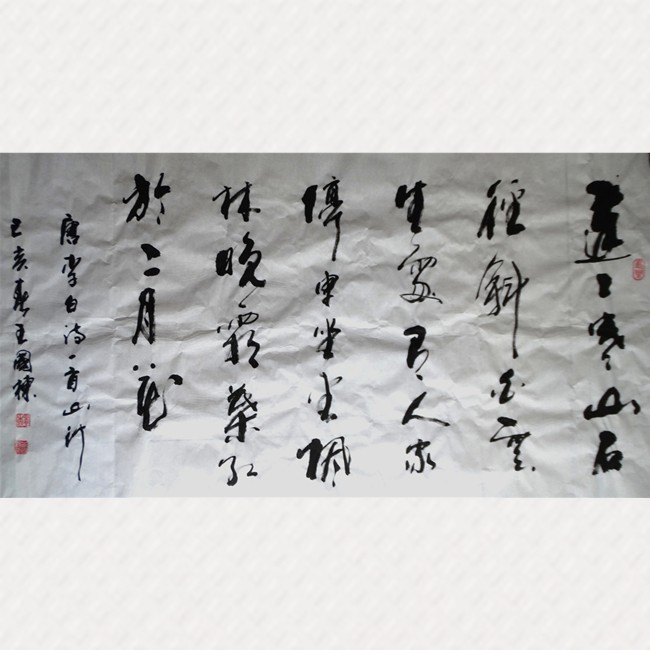 遠上寒山石
徑斜白雲
生處有人家
停車坐愛楓
林晚霜葉紅
於二月花
唐李白詩一首山行
己亥春王國棟